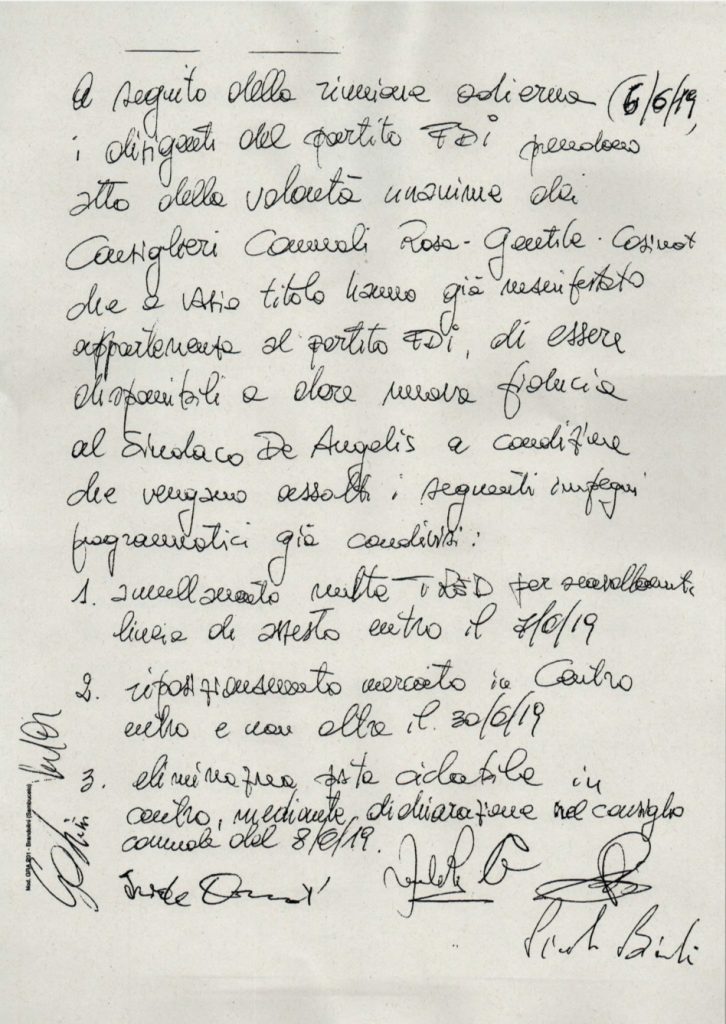 A seguito della riunione odierna (6/6/19,
i dirigenti del partito FDi prendono
atto della volontà unanime dei
Consiglieri Comunali Rosa - Gentile - Cosimat
che a vario titolo hanno già manifestato
appartenenza al partito FDi, di essere
disponibili a dare nuova fiducia
al Sindaco De Angelis a condizione
che vengano assolti i seguenti impegni
programmatici già condivisi:
1. annullamento multe per
linea di arresto entro il 7/6/19
2. riposizionamento mercato in Centro
entro e non oltre il 30/6/19
3. eliminazione pista ciclabile in
centro, mediante dichiarazione nel consiglio
comunale del 8/6/19.